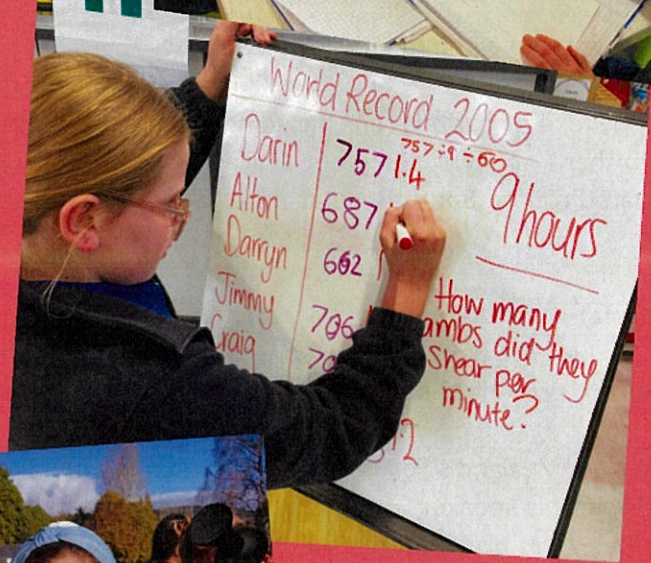 World Record 2005
757 ÷ 9 ÷ 60
Darin 757 1.4
Alton 687
Darryn 662
Jimmy 706
Craig
9 hours
How many
ambs did they
shear per
minute?
1.2